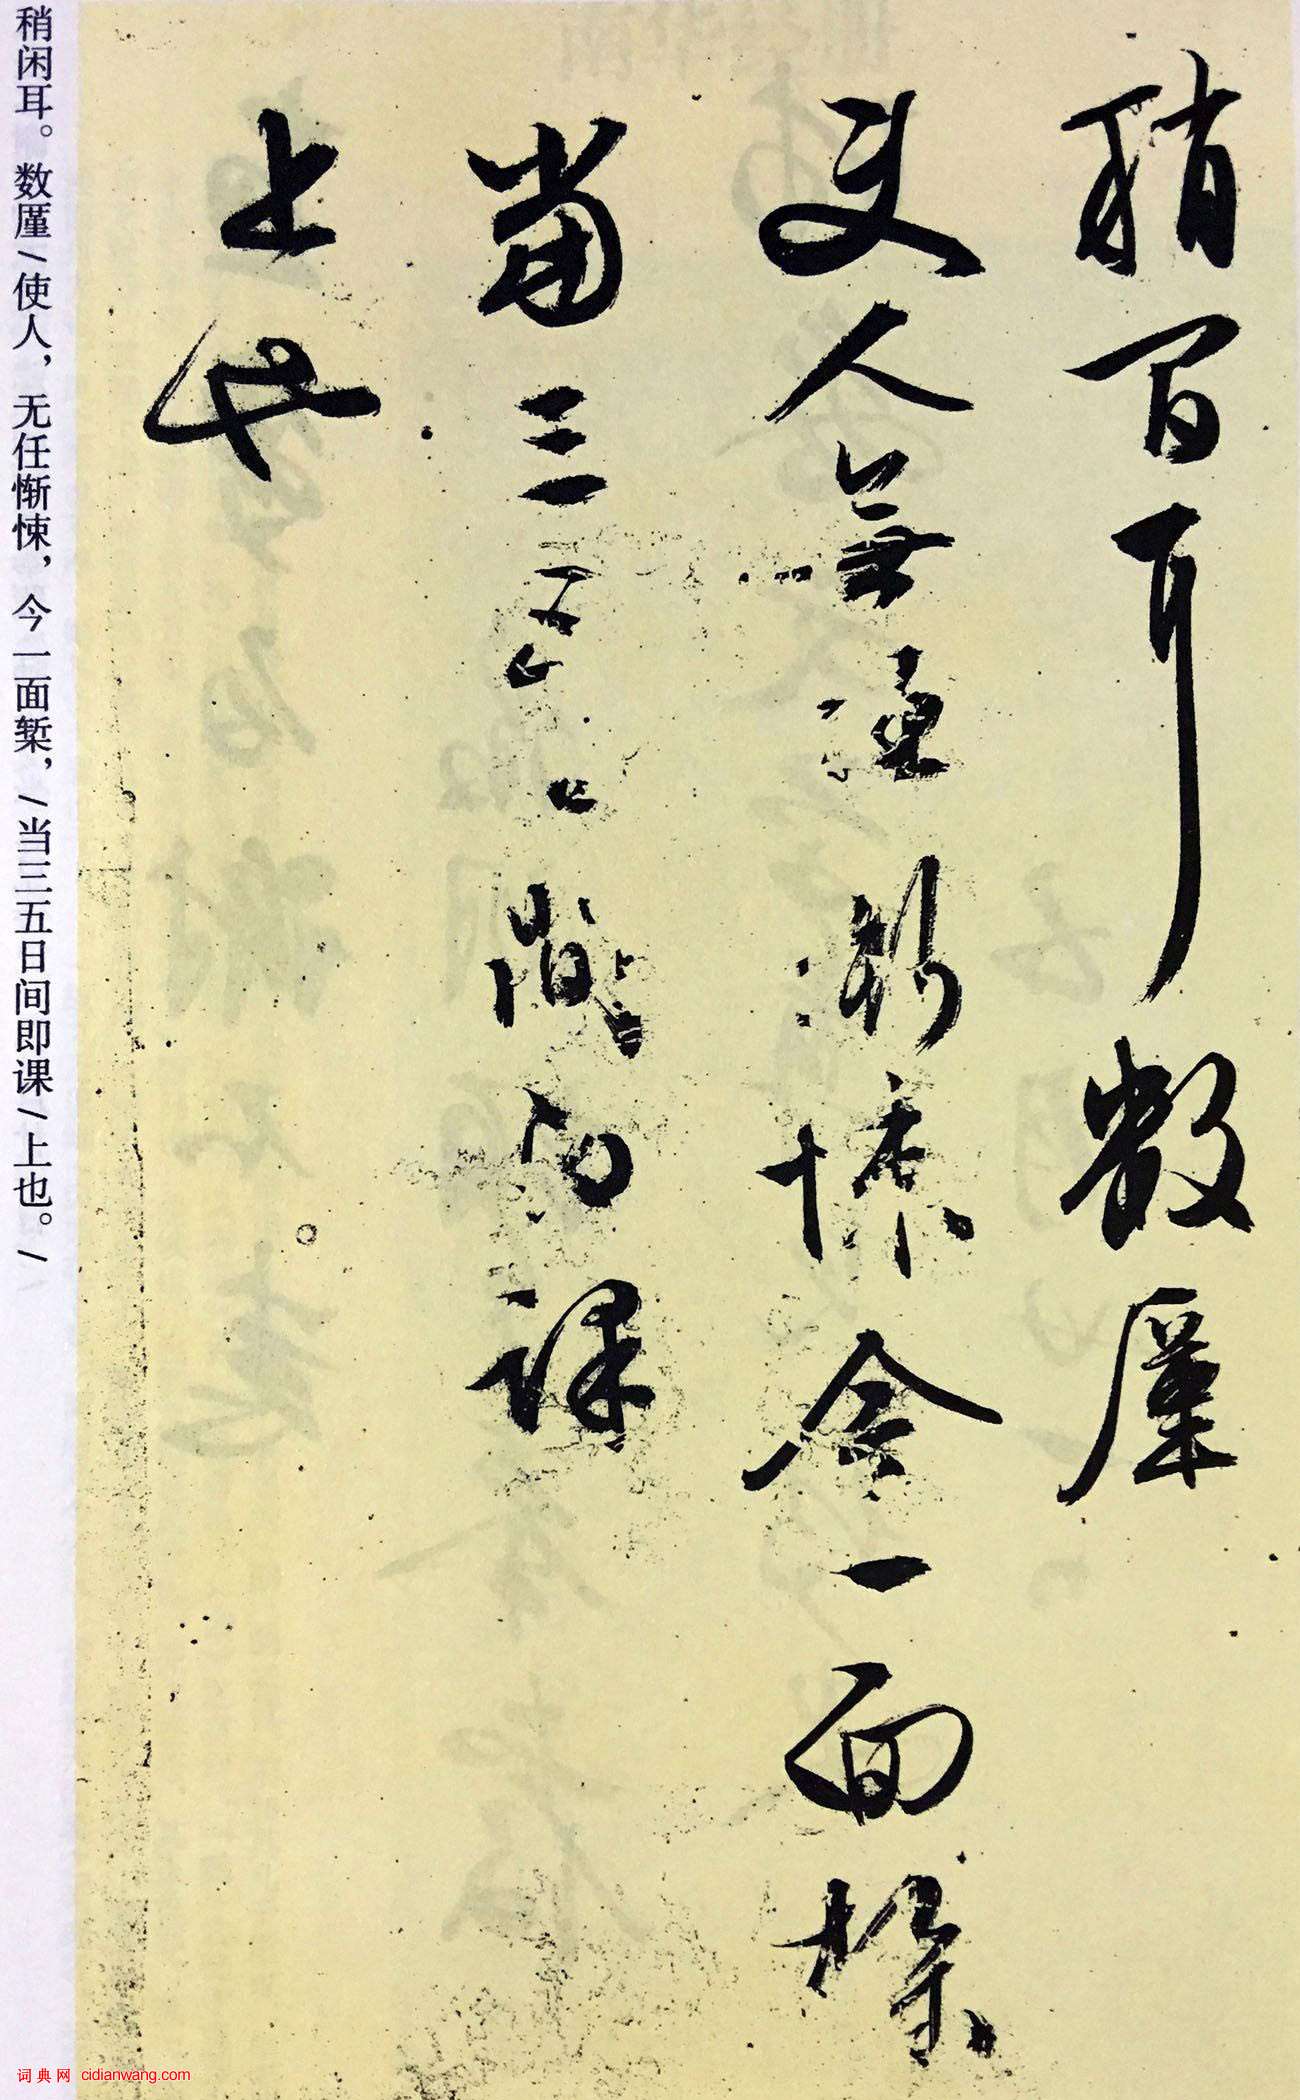 稍闲耳数廑
使人無任慚悚今一面槧
當三五日間即課
上也
稍闲耳。数廑/使人，无任惭悚，今一面椠，/当三五日间即课/上也。/
词典网 cidianwang.com